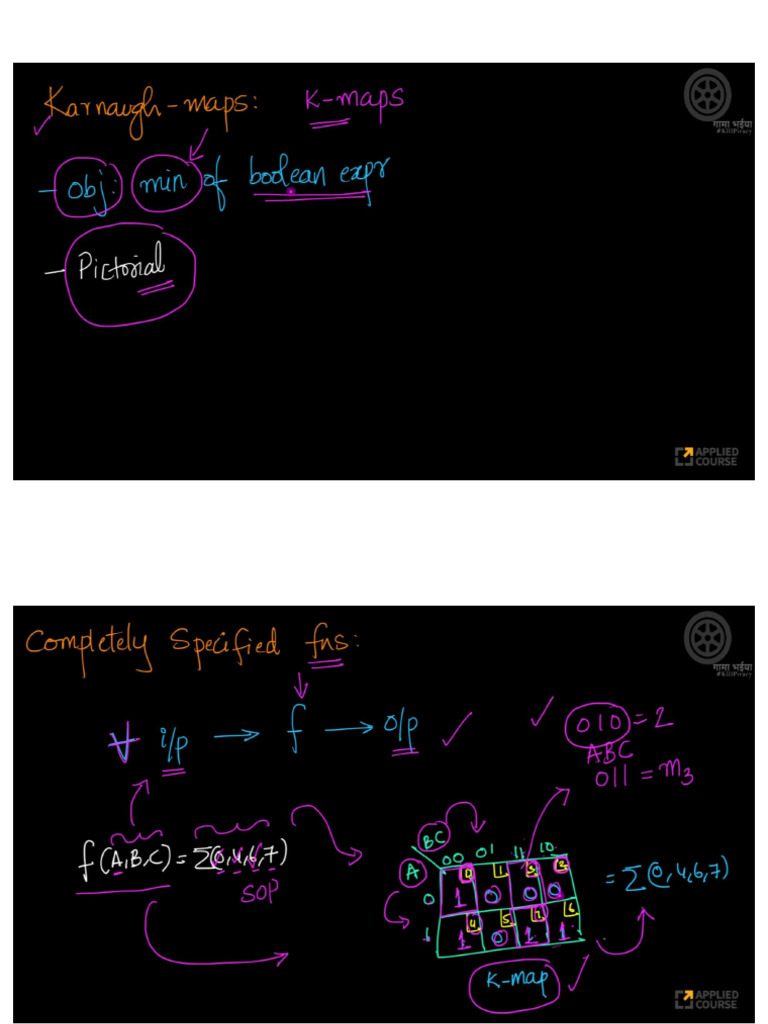 Karnaugh-maps: K-maps
गामा भईया
#KillPiracy
- obj: min of boolean expr
- Pictorial
APPLIED
COURSE
Completely Specified fns:
गामा भईया
#KillPiracy
∀ i/p → f → o/p ✓
✓ 010 = 2
ABC
011 = m₃
f(A,B,C) = Σ(0,4,6,7)
SOP
BC
A 00 01 11 10
0 1 0 0 0
0 1 3 2
1 1 0 1 1
4 5 7 6
= Σ(0,4,6,7)
K-map
APPLIED
COURSE